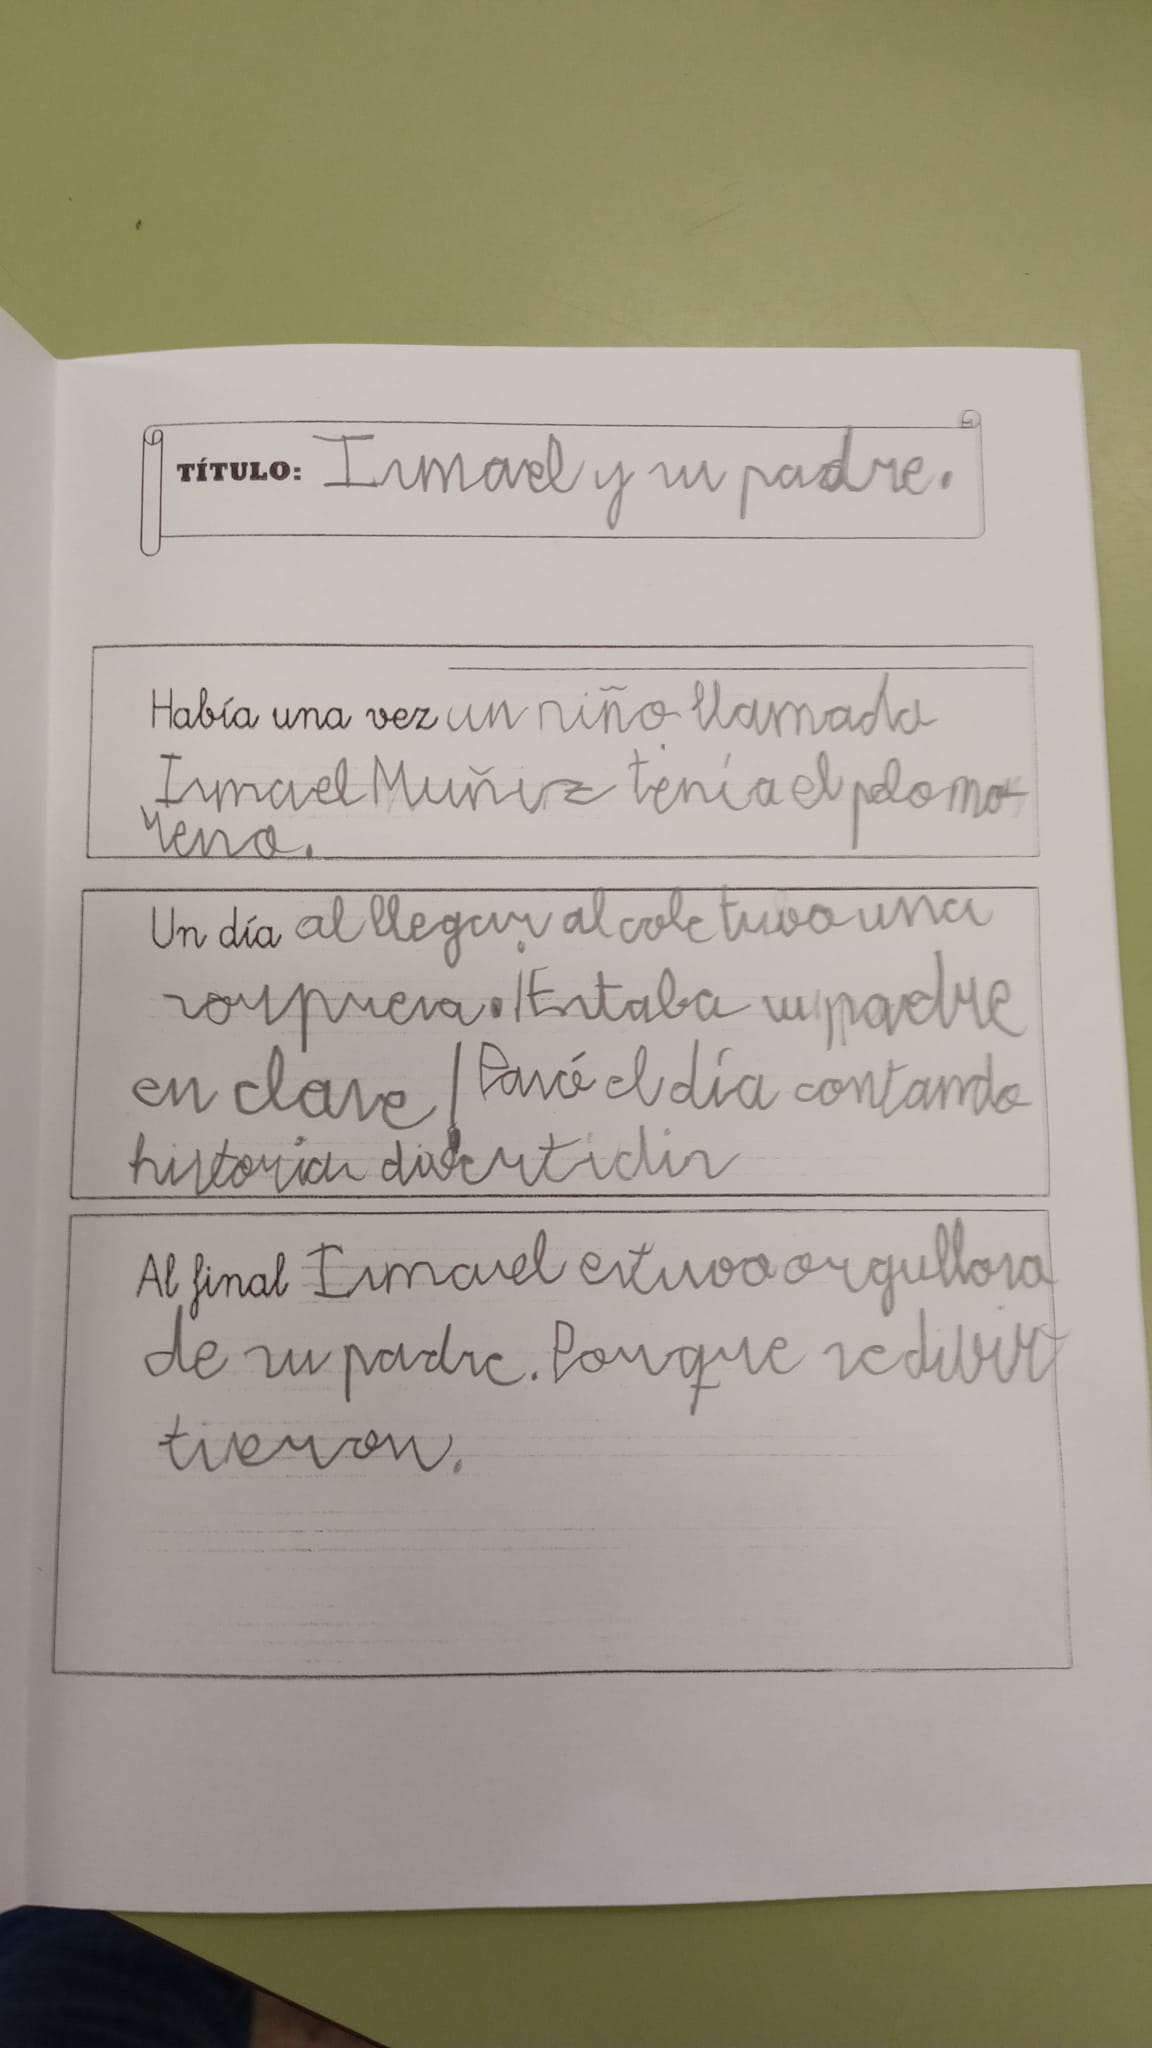 TÍTULO: Ismael y su padre.
Había una vez un niño llamado
Ismael Muñiz tenía el pelo mo-
reno.
Un día al llegar al cole tuvo una
sorpresa. ¡Estaba su padre
en clase! Pasó el día contando
historias divertidas
Al final Ismael estuvo orgulloso
de su padre. Porque se divir
tieron.